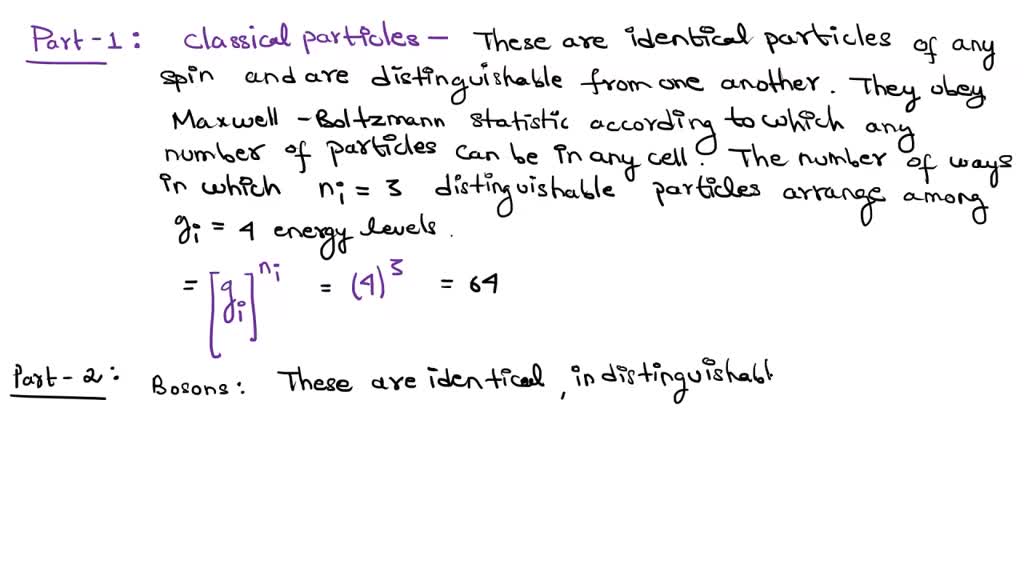 Part-1: Classical particles – These are identical particles of any
spin and are distinguishable from one another. They obey
Maxwell-Boltzmann statistic according to which any
number of particles can be in any cell. The number of ways
in which ni = 3 distinguishable particles arrange among
gi = 4 energy levels.
= [gi]^ni = (4)^3 = 64
Part-2: Bosons: These are identical, indistinguishabl